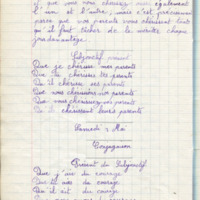 que vous nous chérissez avec également
l'un et l'autre, mais c'est justement
parce que nos parents nous chérissent tant
qu'il faut tâcher de le mériter chaque
jour davantage.
Subjonctif présent
Que je chérisse mes parents
Que tu chérisses tes parents
Qu'il chérisse ses parents
Que nous chérissions nos parents
Que vous chérissiez vos parents
Qu'ils chérissent leurs parents
Samedi 2 Mai
Conjugaison
Présent du Subjonctif
Que j'aie du courage
Que tu aies du courage
Qu'il ait du courage